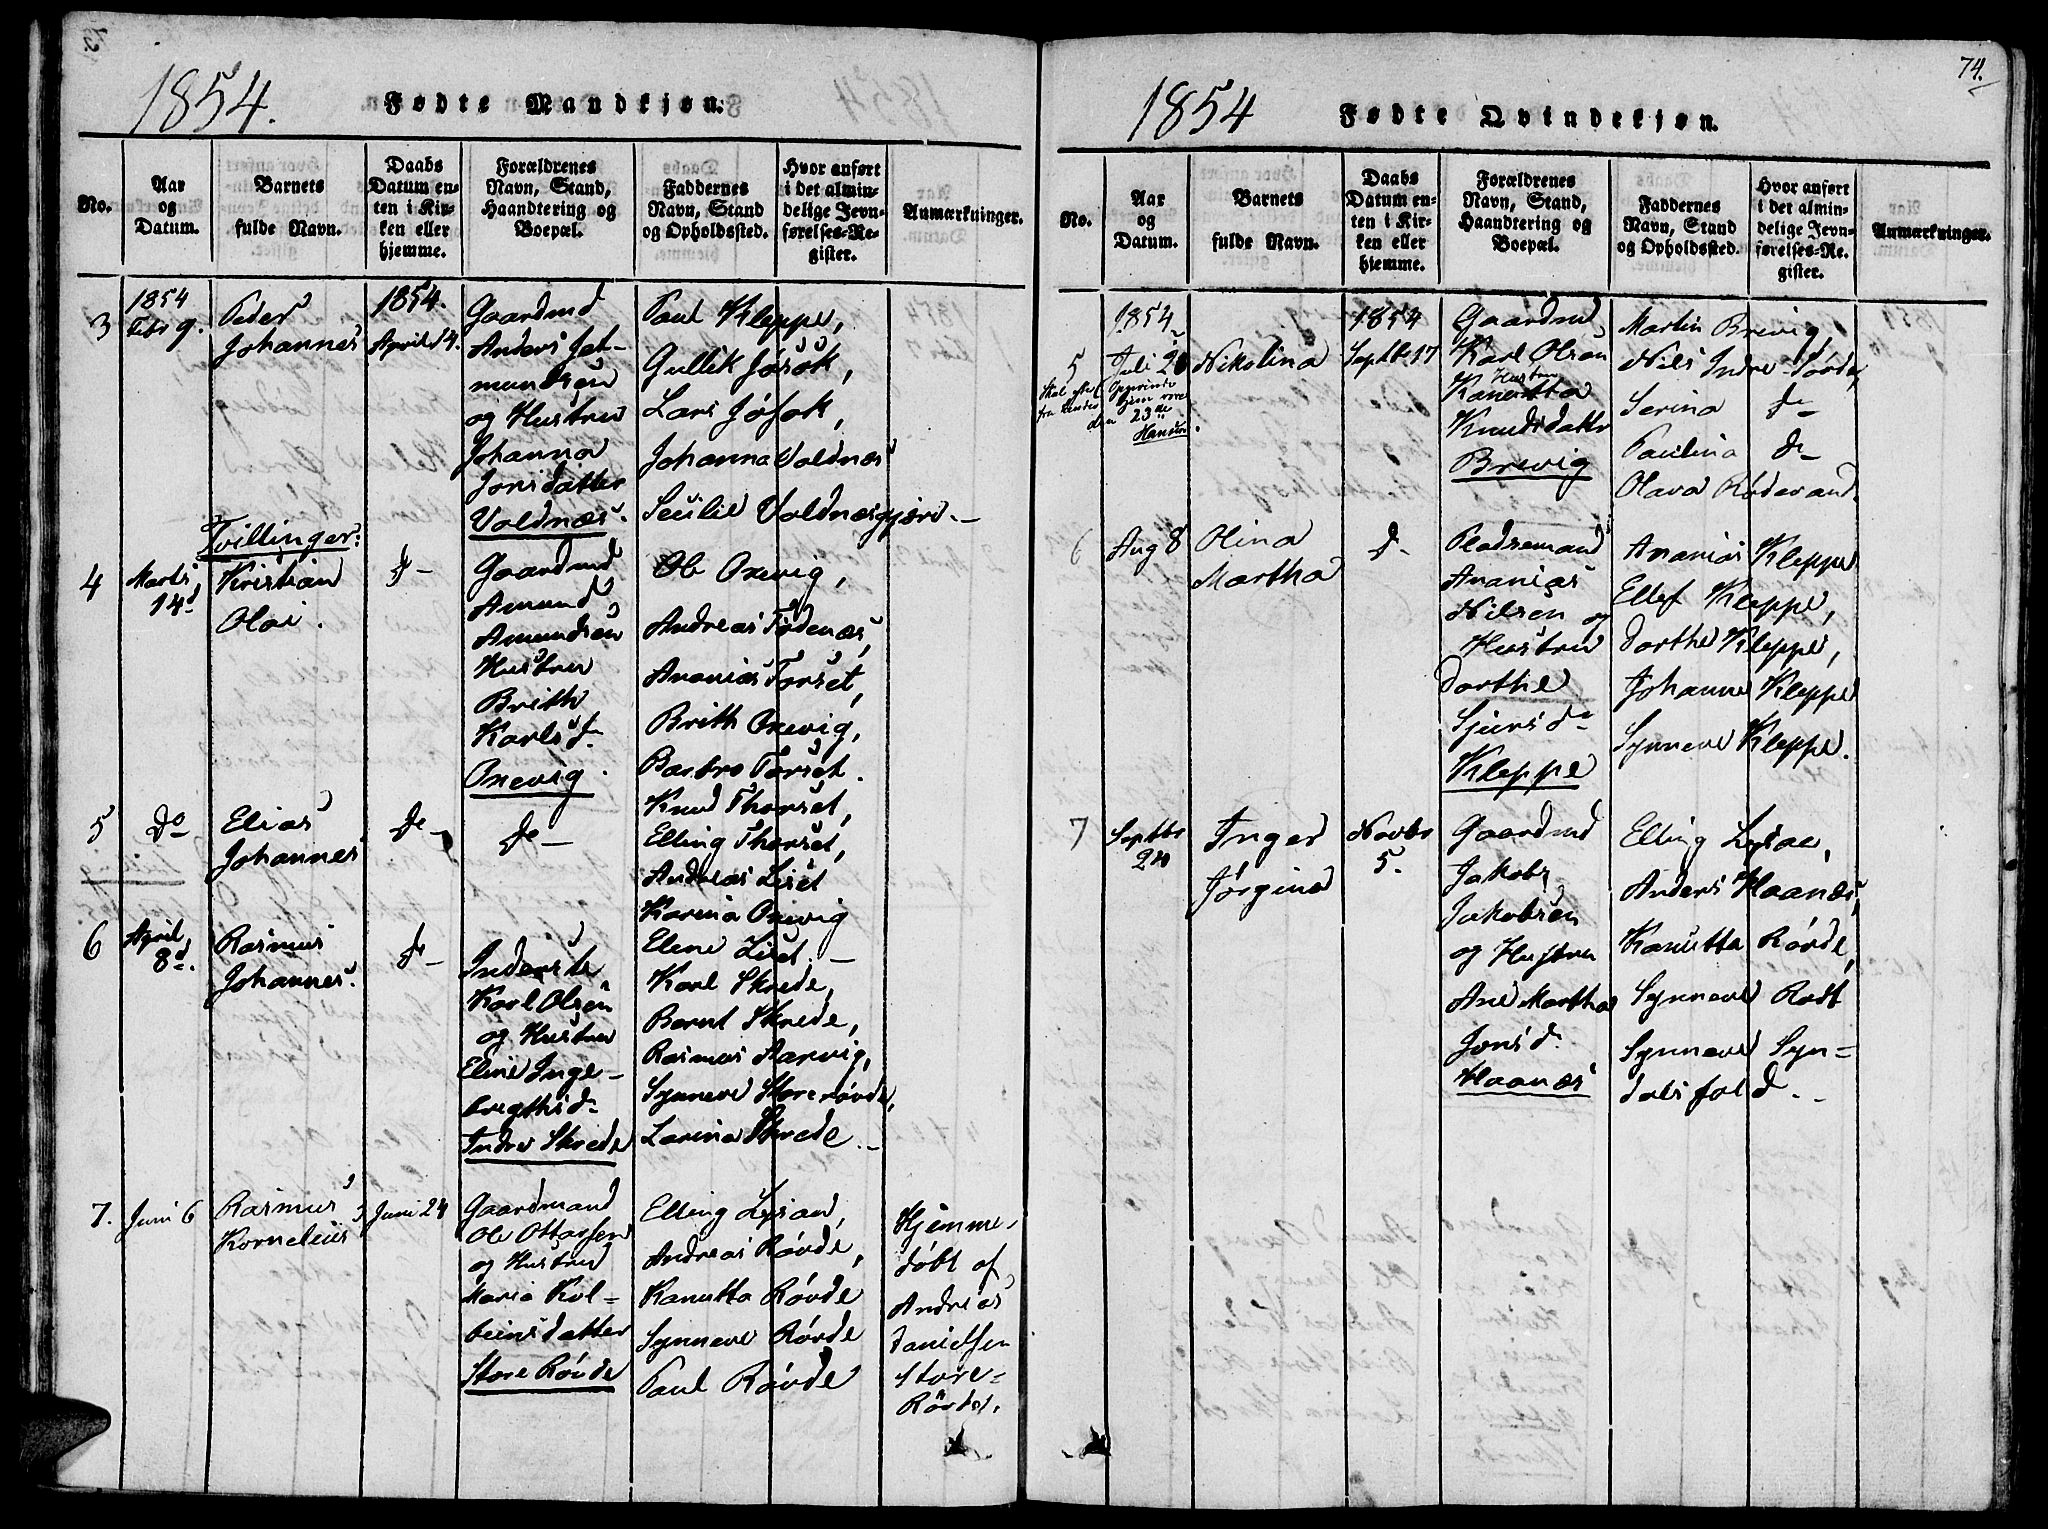 1854.
Fødte Mandkjøn.
No.
Aar
og
Datum.
Barnets
fulde Navn.
Daabs
Datum en-
ten i Kir-
ken eller
hjemme.
Forældrenes
Navn, Stand,
Haandtering og
Boepæl.
Faddernes
Navn, Stand
og Opholdssted.
Hvor anført
i det almin-
delige Jevn-
førelses-Re-
gister.
Anmærkninger.
3
1854
Febr 9.
Peder
Johannes
1854.
April 14.
Gaardmd
Anders
og Hustru
Johanna
Jonsdatter
Voldnæs.
Paul Kleppe,
Gullik Jøsok,
Lars Jøsok,
Johanna Voldnæs
Secilie Voldnæsgjærd.
Tvillinger:
4
Marts
14d
Kristian
Oloi.
do
Gaardmd
Amund
Amundsen
Hustru
Brith
Karlsd.
Oxevig.
Ole Oxevig,
Andreas Tødenæs,
Ananias Torset,
Brith Oxevig,
Barbro Torset.
5
Do
Elias
Johannes
do
do
Knud Thorset,
Elling Thorset,
Andreas Liset
Karina Oxevig
Elene Liset.
6
April
8d.
Rasmus
Johannes.
do
Inderste
Karl Olsen
og Hustru
Eline Inge-
bregthsd.
Indre Skrede
Karl Skrede,
Bernt Skrede,
Rasmus Aarvig,
Synneve Storerøvde,
Larina Skrede.
7.
Juni 6
Rasmus
Kornelius
Juni 24
Gaardmand
Ole Ottassen
og Hustru
Maria Kol-
beinsdatter
Store Røvde
Elling Lysaa,
Andreas Røvde,
Kanutta Røvde
Synneve Røvde
Paul Røvde
Hjemme-
døbt af
Andreas
Danielsen
Store-
Røvde.
74.
1854
Fødte Qvindekjøn.
No.
Aar
og
Datum.
Barnets
fulde Navn.
Daabs
Datum en-
ten i Kir-
ken eller
hjemme.
Forældrenes
Navn, Stand,
Haandtering og
Boepæl.
Faddernes
Navn, Stand
og Opholdssted.
Hvor anført
i det almin-
delige Jevn-
førelses-Re-
gister.
Anmærkninger.
5
1854
Juli 20
Skal
være
den 23de
Nikolina
1854
Septbr 17
Gaardmd
Karl Olsen
Hustru
Kanutta
Knudsdatter
Brevig
Martin Brevig,
Nils Indre-Førde,
Serina do
Paulina do
Olava Røderand.
6
Aug 8
Olina
Martha
do
Pladsemand
Ananias
Nilsen og
Hustru
Dorthe
Sjursd.
Kleppe
Ananias Kleppe
Ellef Kleppe,
Dorthe Kleppe,
Johanne Kleppe
Synneve Kleppe.
7
Septbr
20
Inger
Jørgine
Novbr
5.
Gaardmd
Jakob
Jakobsen
og Hustru
Ane Martha
Jonsd.
Haanæs
Elling Lysaa,
Anders Haanæs,
Kanutta Røvde,
Synneve
Synneve Syn-